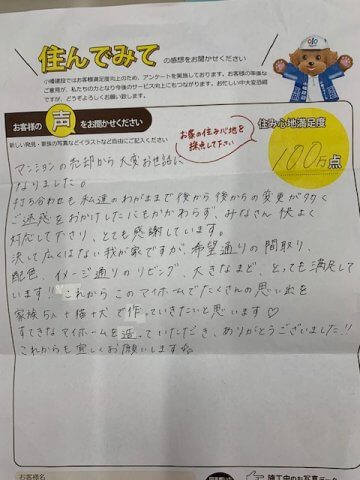 住んでみて の感想をお聞かせください
小幡建設ではお客様満足度向上のため、アンケートを実施しております。お客様の率直な
ご意見が、私たちの力となり今後のサービス向上にもつながります。お忙しい中大変恐縮
ですが、どうぞよろしくお願い致します。
お客様の 声 をお聞かせください
新しい発見・家族の写真などイラストなど自由にご記入ください
お家の住み心地を
採点して下さい
住み心地満足度
100万点
マンションの売却から大変お世話に
なりました。
打ち合わせも私達のわがままで後から後からの変更が多く
ご迷惑をおかけしたにもかかわらず、みなさん快よく
対応して下さり、とても感謝しています。
決して広くはない我が家ですが、希望通りの間取り、
配色、イメージ通りのリビング、大きなまど、とっても満足して
います!! これからこのマイホームでたくさんの思い出を
家族5人+猫+犬で作っていきたいと思います♡
すてきなマイホームを造っていただき、ありがとうございました!!
これからも宜しくお願いします
お客様名
施工中のお写真データ